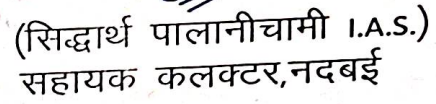 (सिद्धार्थ पालानीचामी I.A.S.)
सहायक कलक्टर,नदबई